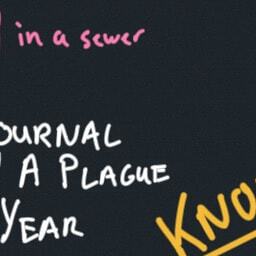 in a sewer
OURNAL
A PLAGUE
YEAR
KNO